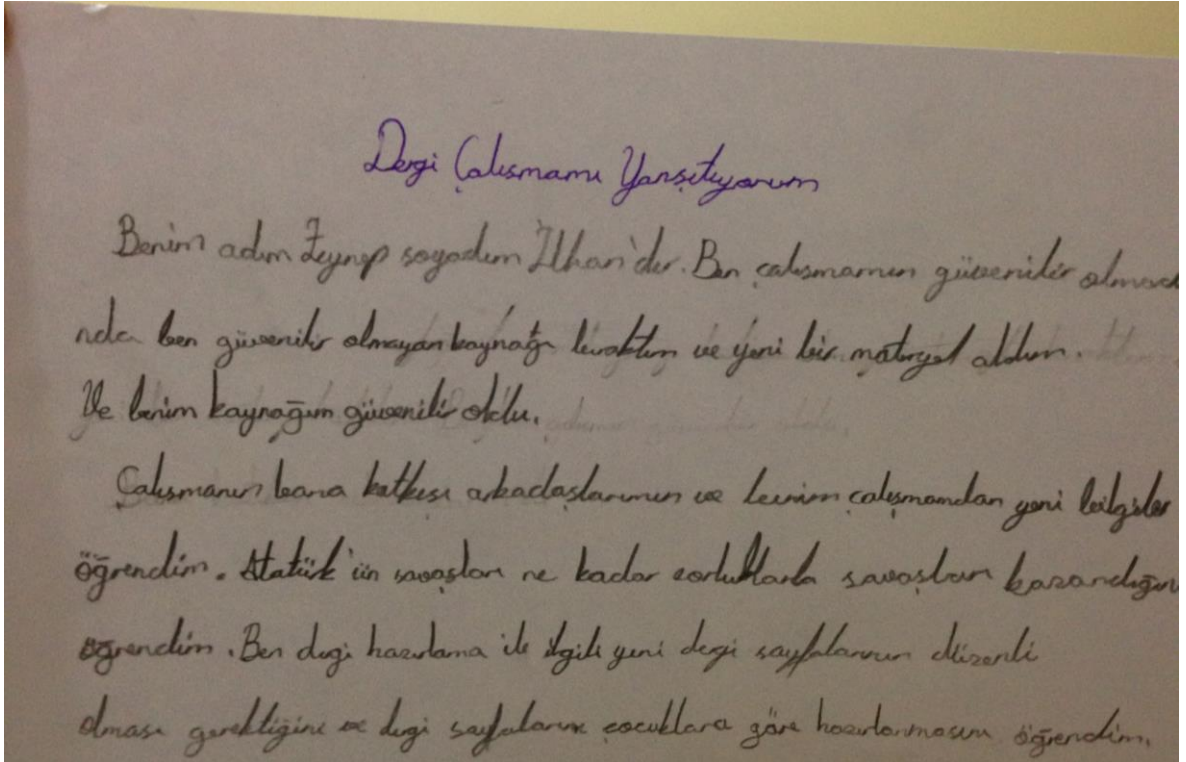 Dergi Çalışmamı Yansıtıyorum
Benim adım Zeynep soyadım İlhan'dır. Ben çalışmamın güvenilir olmadı
nda ben güvenilir olmayan kaynağı bıraktım ve yeni bir materyel aldım.
Ve benim kaynağım güvenilir oldu.
Çalışmanın bana katkısı arkadaşlarımın ve benim çalışmamdan yeni bilgiler
öğrendim. Atatürk'ün savaşları ne kadar zorluklarla savaşları kazandığını
öğrendim. Ben dergi hazırlama ile ilgili yeni dergi sayfalarının düzenli
olması gerektiğini ve dergi sayfalarını çocuklara göre hazırlanmasını öğrendim.